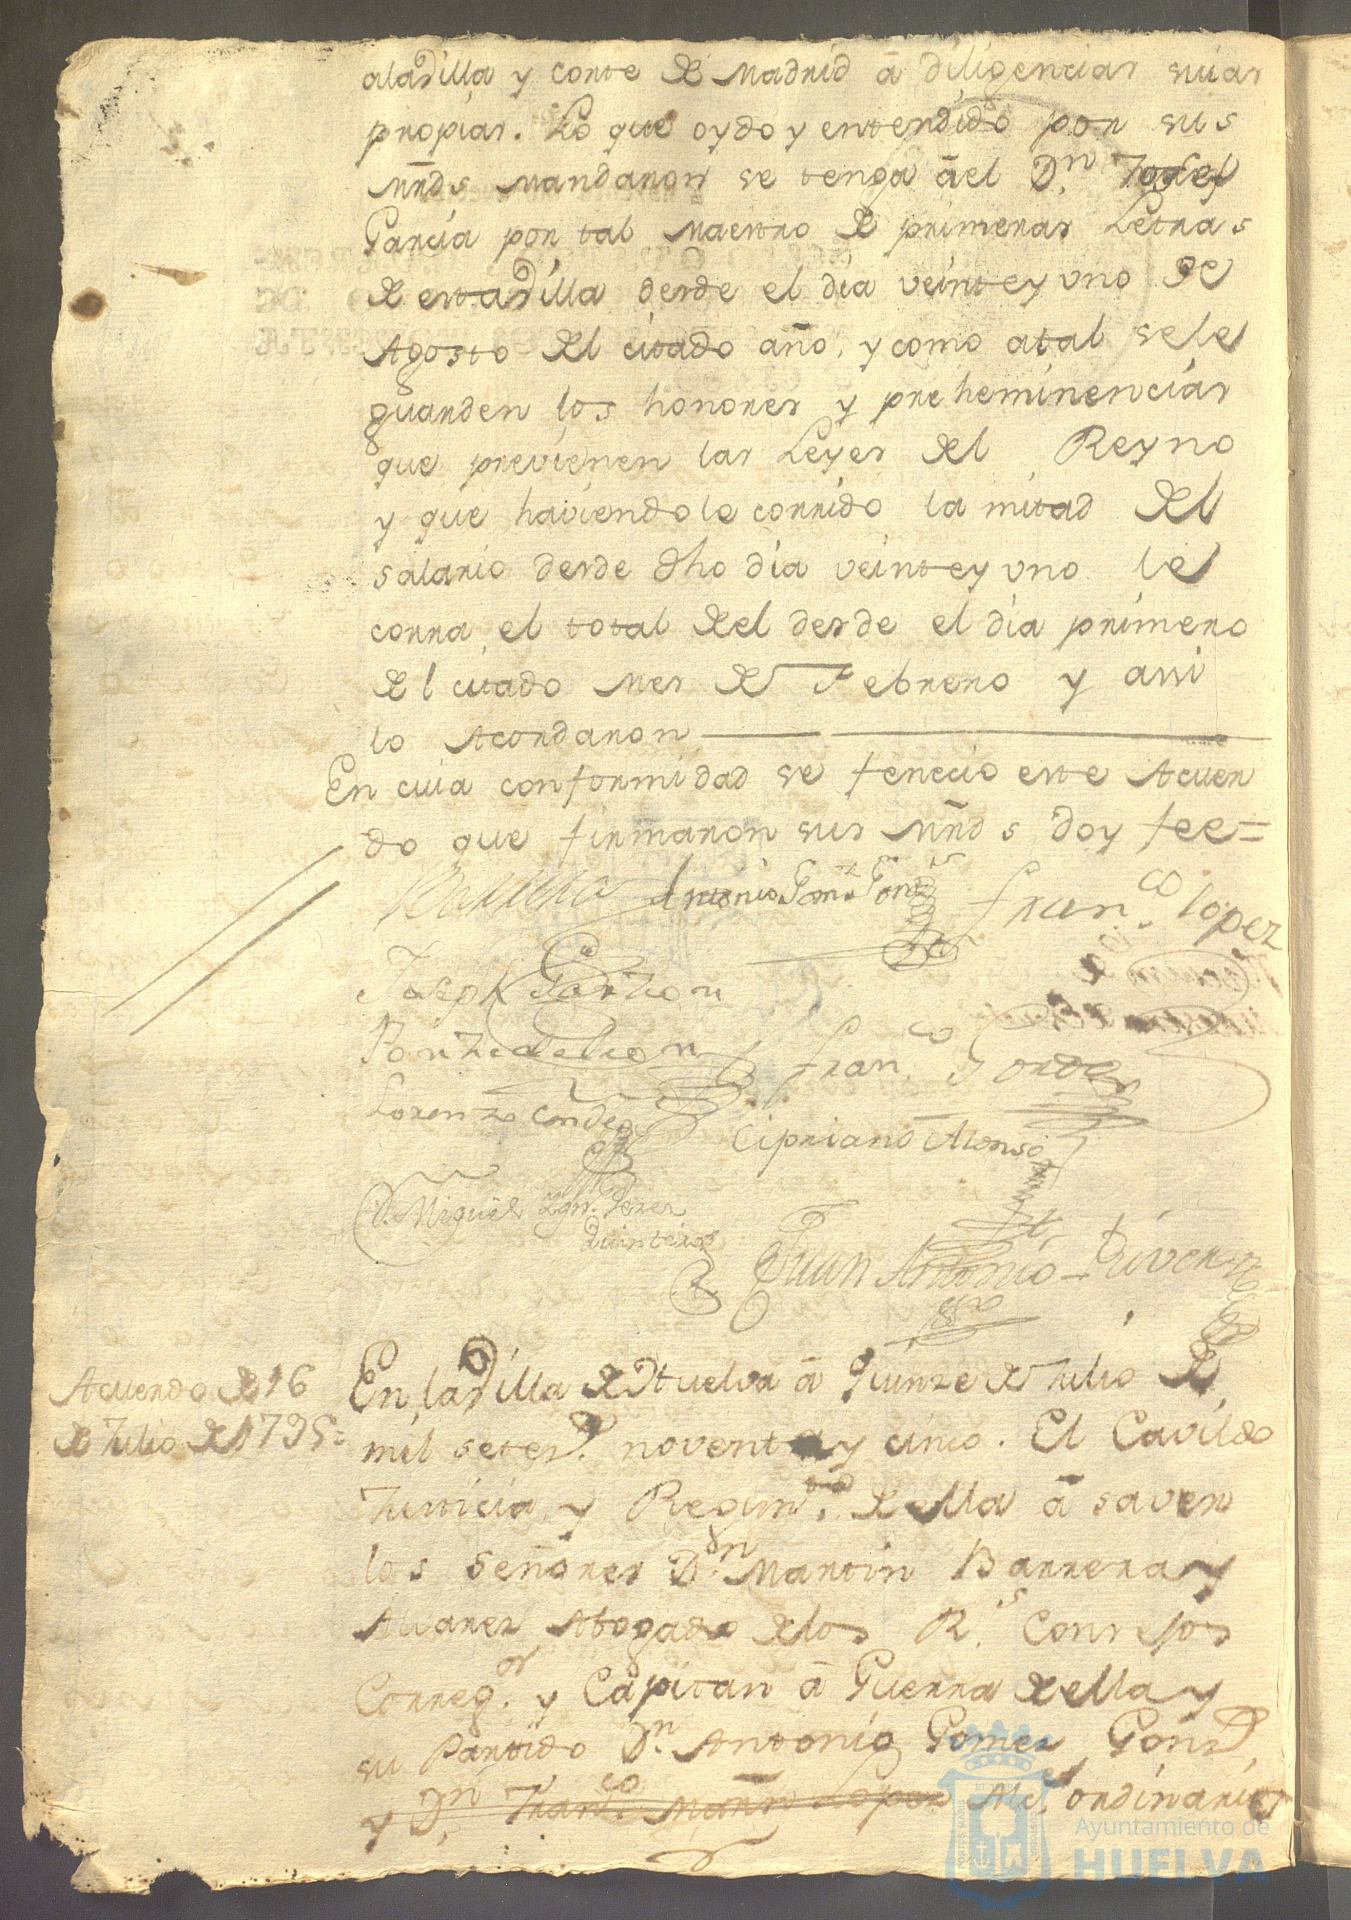 alaVilla y corte de Madrid â diligencias suias
propias. Lo que oydo y entendido por sus
Mrds Mandaron se tenga âel Dn. Josef
Garcia por tal Maestro de primeras Letras
de estaVilla desde el dia veinte y uno de
Agosto del citado año, y como atal sele
guarden los honores y preheminencias
que previenen las Leyes del Reyno
y que haviendole corrido la mitad del
salario desde dho dia veinte y uno le
corra el total del desde el dia primero
del citado Mes de Febrero y assi
lo Acordaron
En cuia conformidad se fenecio este Acuer
do que firmaron sus Mrds doy fee=
Antonio Gomz. Gonz
Franco. Lopez
Joseph Garzia
Ponze de Leon
Franco. Jorda
Lorenzo Conde
Cipriano Alonso
D. Miguel Ign. Perez
Quintero
Juan Antonio Rivera
Acuerdo de 16
de Julio de 1795=
En laVilla de Huelva â Quinze de Julio de
mil setes. noventa y cinco. El Cavildo
Justicia y Regimto. de ella â saver
los Señores Dn. Martin Barrera y
Alvarez Abogado delos Rs. Consejos
Corregor. y Capitan â Guerra de ella y
su Partido Dn. Antonio Gomez Gonz
y Dn. Franco. Lopez Alcs. ordinarios
Ayuntamiento de
HUELVA